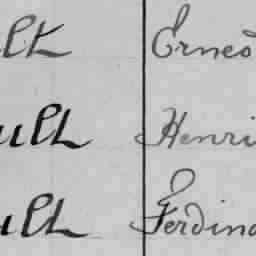 ult Ernes
ult Henri
ult Ferdina